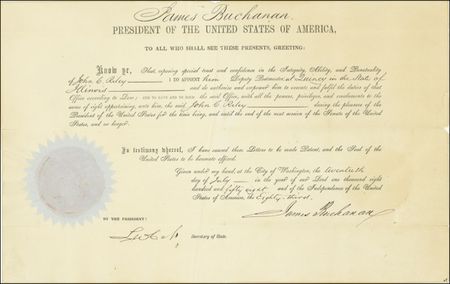 James Buchanan.
PRESIDENT OF THE UNITED STATES OF AMERICA,
TO ALL WHO SHALL SEE THESE PRESENTS, GREETING:
Know ye, That reposing special trust and confidence in the Integrity, Ability, and Punctuality
of John C. Riley I DO APPOINT him Deputy Postmaster at Quincy in the State of
Illinois and do authorize and empower him to execute and fulfil the duties of that
Office according to Law; AND TO HAVE AND TO HOLD the said Office, with all the powers, privileges, and emoluments to the
same of right appertaining, unto him, the said John C. Riley during the pleasure of the
President of the United States for the time being, and until the end of the next session of the Senate of the United
States, and no longer.
In testimony whereof, I have caused these Letters to be made Patent, and the Seal of the
United States to be hereunto affixed.
Given under my hand, at the City of Washington, the twentieth
day of July in the year of our Lord one thousand eight
hundred and fifty eight and of the Independence of the United
States of America, the Eighty-third.
James Buchanan
BY THE PRESIDENT:
Secretary of State.